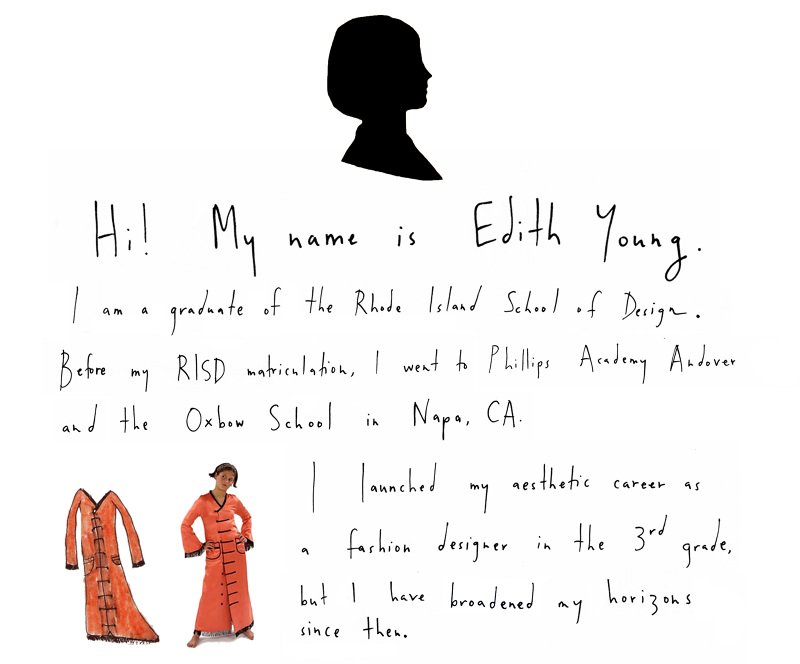 Hi! My name is Edith Young.
I am a graduate of the Rhode Island School of Design.
Before my RISD matriculation, I went to Phillips Academy Andover
and the Oxbow School in Napa, CA.
I launched my aesthetic career as
a fashion designer in the 3rd grade,
but I have broadened my horizons
since then.